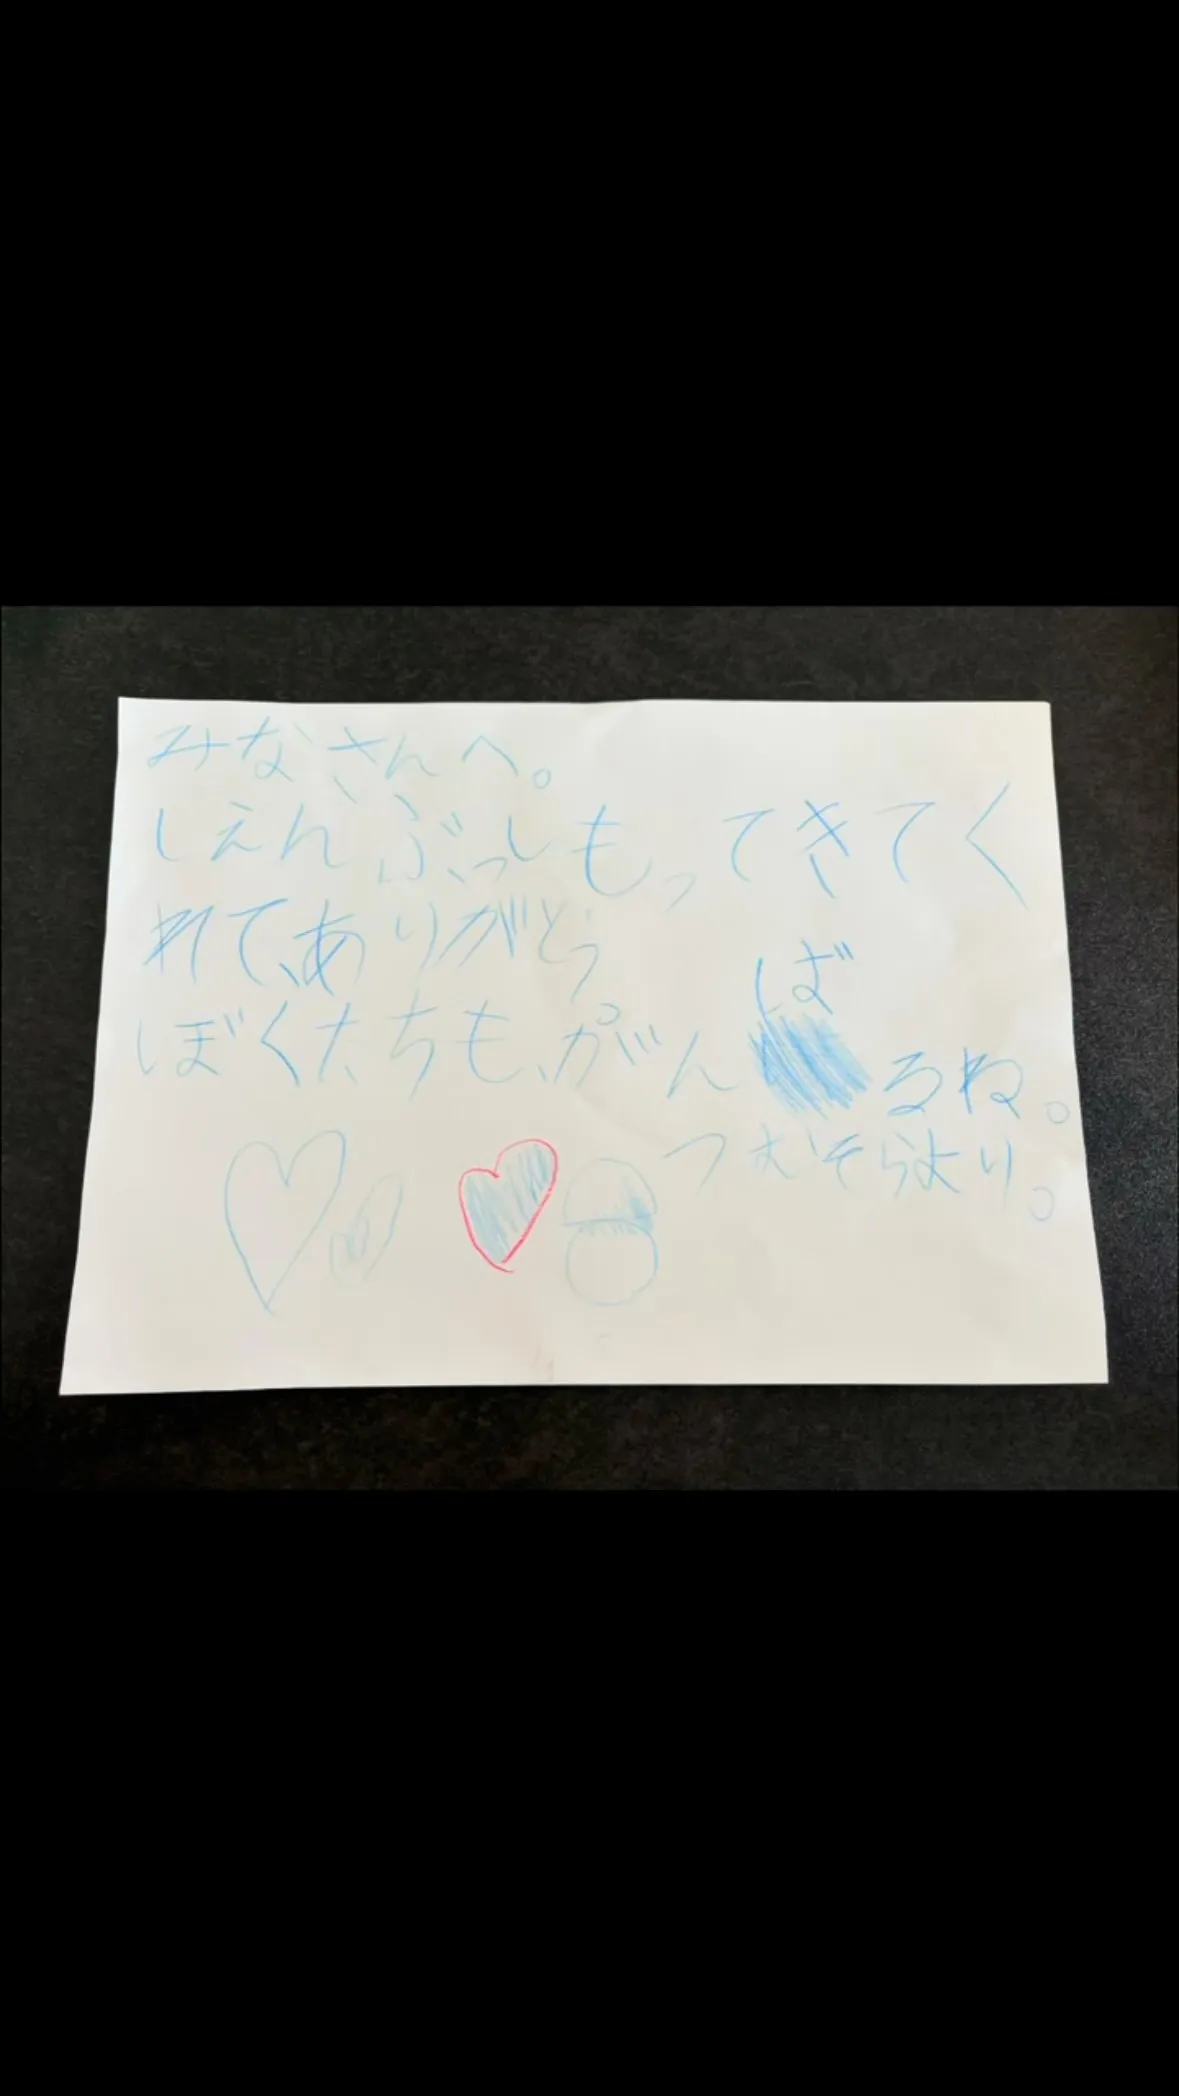 みなさんへ。
しえんぶっしもってきてく
れて、ありがとう
ぼくたちも、がんばるね。
つむそらより。